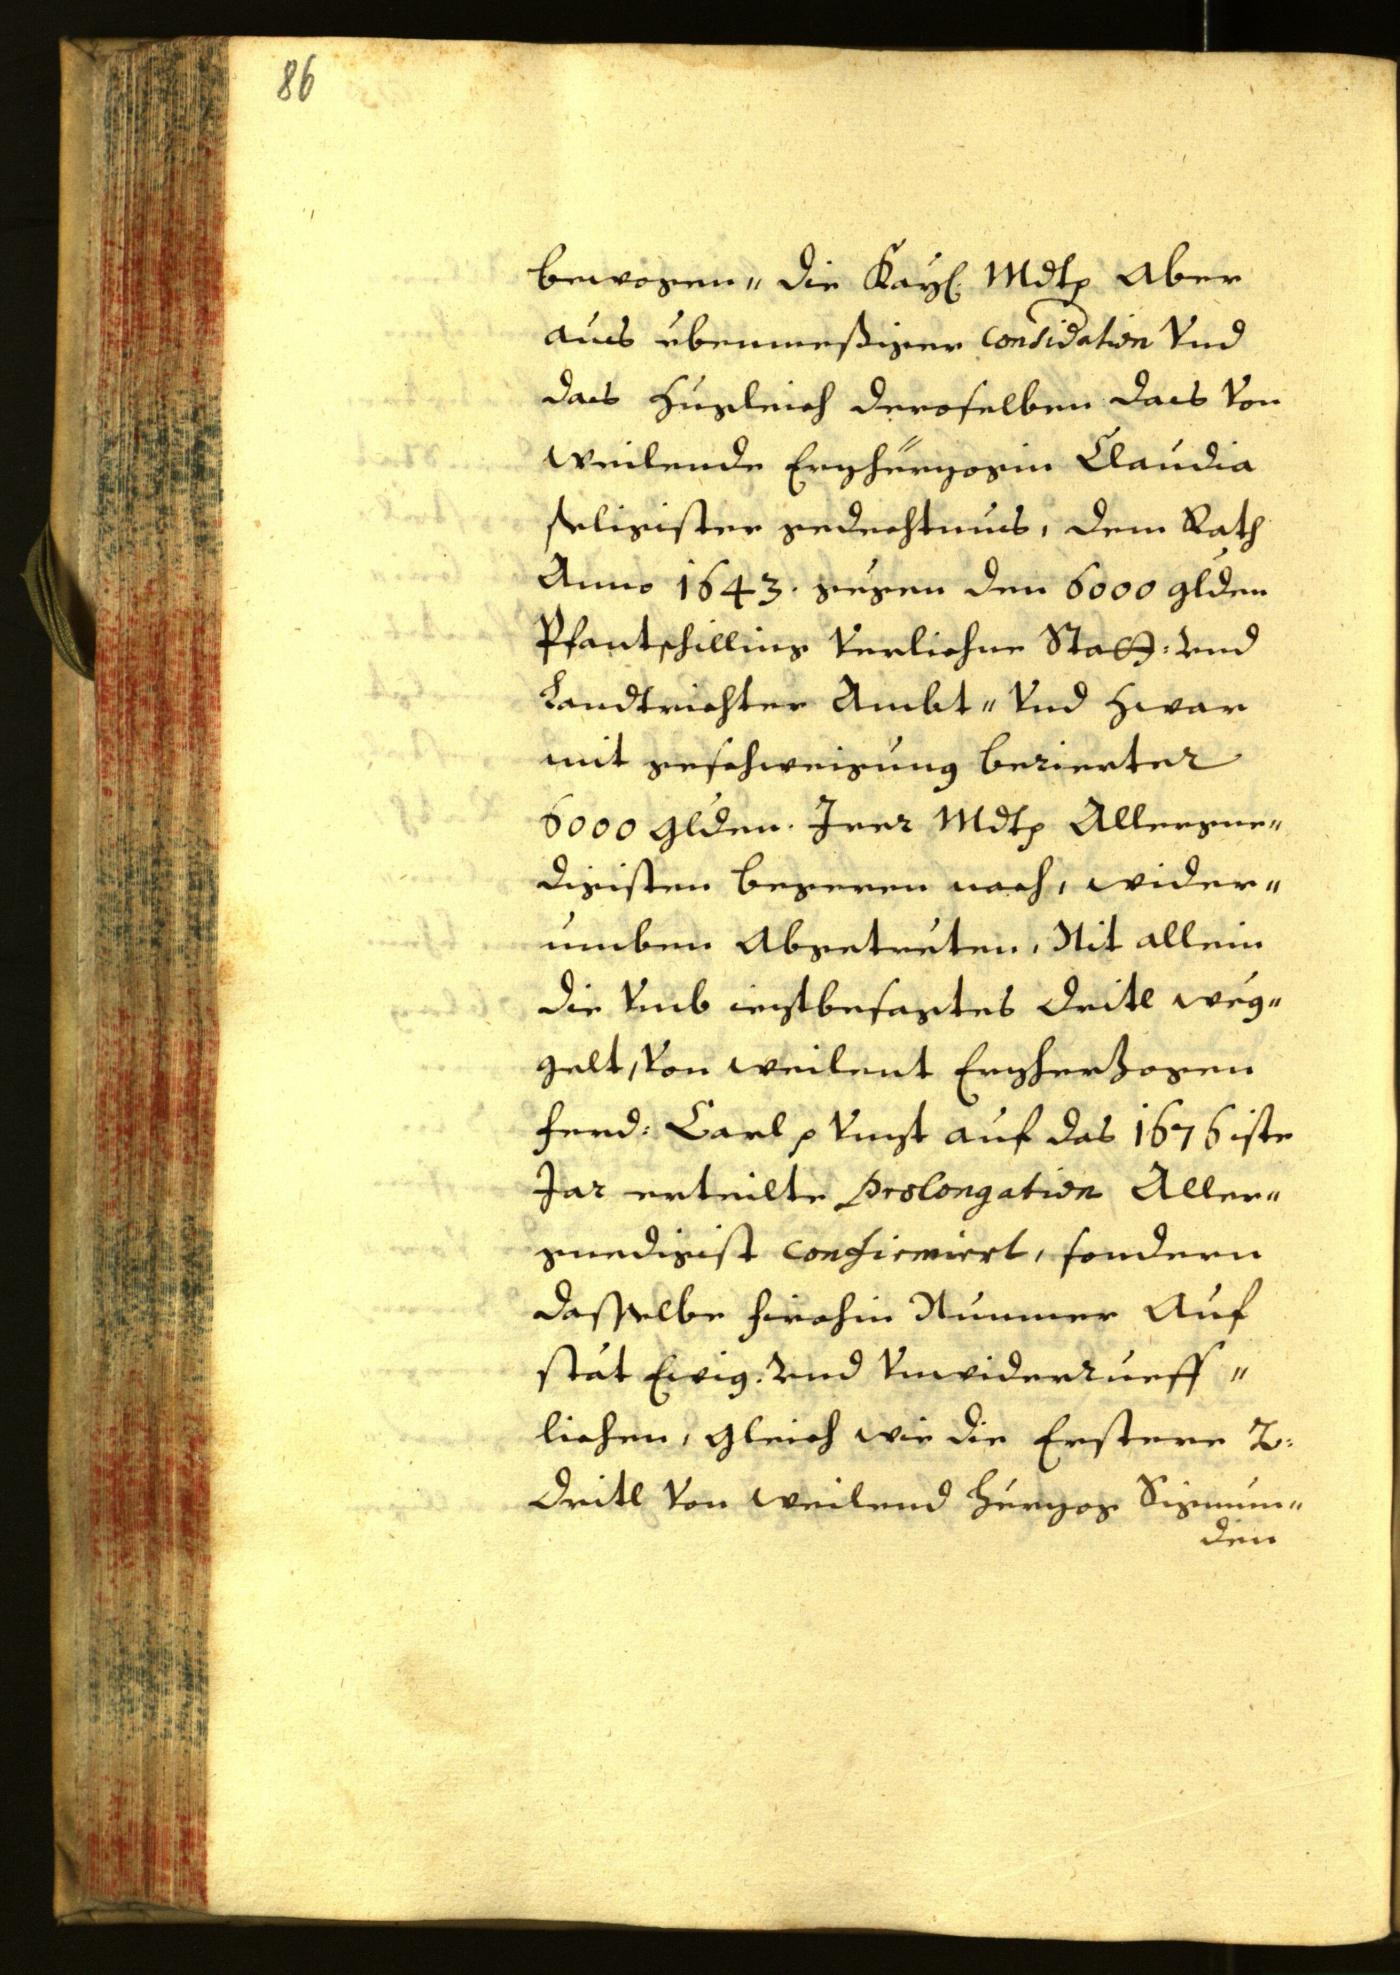 86
bewogen" die Kayl. Mdtp Aber
aus ebenmeßiger considation Vnd
das zugleich deroselben das Von
weilende Erzherzogin Claudia
seligister gedechtnus, dem Rath
Anno 1643. gegen den 6000 glden
Pfantschilling Verlichne Statt: vnd
Landtrichter Ambt" Vnd zwar
mit geschweigung berierter
6000 glden. Irer Mdtp Allergne"
digisten begeren nach, wider"
umben Abgetreten, Nit allein
die Vmb ieztbesagtes dritl weg"
gelt, Von weilent Erzherzogen
ferd: Carl p Vnzt auf das 1676iste
Jar erteilte prolongation Aller"
gnedigist confirmiert, sondern
dasselbe hirohin Nunmer Auf
stät Ewig. vnd Vnwiderrueff"
lichen, gleich wie die Erstere 2:
dritl Von weilend herzog Sigmun"
den